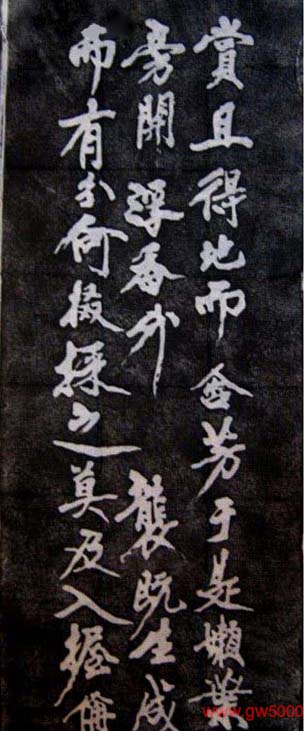 賞且得地而含芳于是嫩葉
旁開浮香外襲既生成
而有分何掇採之莫及入握備
www.gw5000